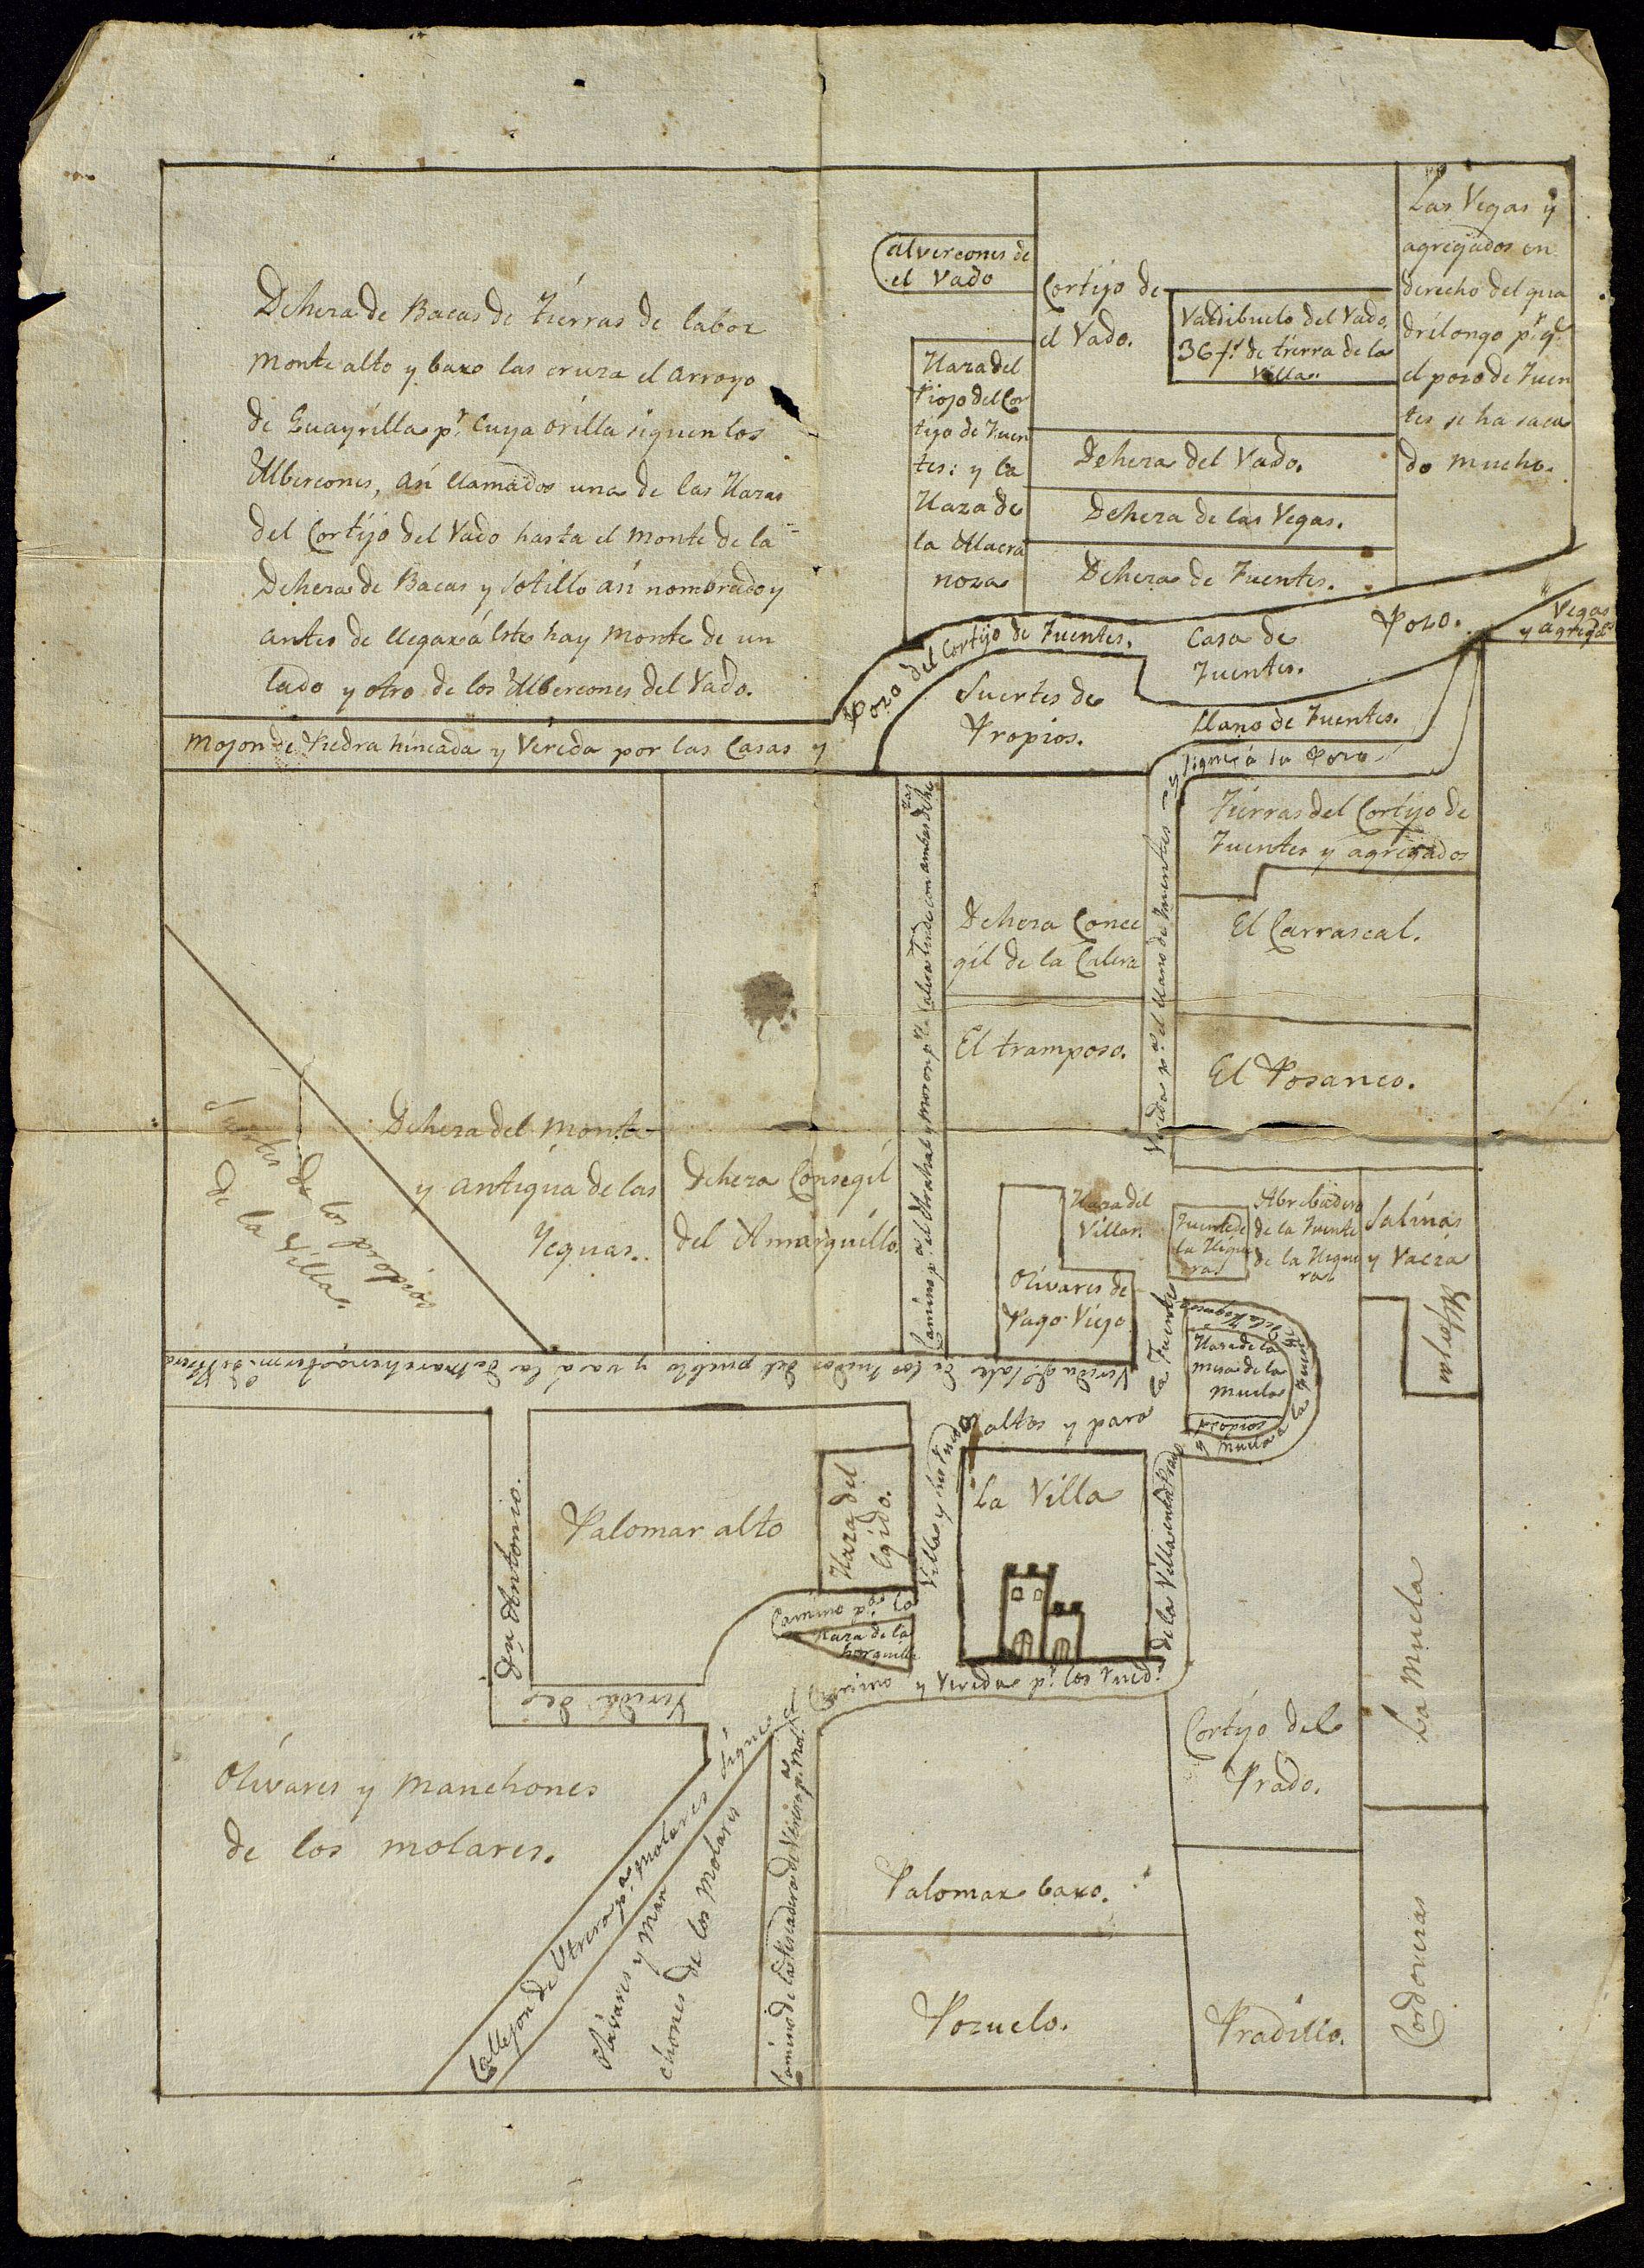 Dehesa de Bacas de Tierras de labor
monte alto y baxo las cruza el arroyo
de Guayrilla pr. cuya orilla siguen los
Albercones, asi llamados una de las Hazas
del Cortijo del Vado hasta el monte de la
Dehesa de Bacas y Sotillo asi nombrado y
antes de llegar á este hay monte de un
lado y otro de los Albercones del Vado.
alvercones de
el Vado
Cortijo de
el Vado.
Valdibuelo del Vado,
36 fs. de tierra de la
Villa
Las Vegas y
agregados en
derecho del qua
drilongo pr. qe.
el poso de Fuen
tes se ha saca
do mucho.
Haza del
Piojo del Cor
tijo de Fuen
tes: y la
Haza de
la Macra
nosa
Dehesa del Vado.
Dehesa de las Vegas.
Dehesa de Fuentes.
Poso del Cortijo de Fuentes.
Casa de
Fuentes.
Poso.
Vegas
y agregads.
Suertes de
Propios.
Llano de Fuentes.
y sigue á su Poso
Mojon de Piedra hincada y Vereda por las Casas y
Tierras del Cortijo de
Fuentes y agregados
Dehesa Conce
gil de la Calera
El Carrascal.
El tramposo.
El Posanco.
Camino pa. el Arahal y Moron pr. la Calera linde con ambas Dehe
zas
Vereda pa. el llano de Fuentes
Suertes de los propios
de la Villa.
Dehesa del Monte
y antigua de las
Yeguas.
Dehesa Consegil
del Amarguillo.
Haza del
Villar.
Olivares de
Pago Viejo
Fuente de
la Higue
ra.
Abrebadero
de la Fuente
de la Higue
ra.
Salinas
y Vacia
Haza de la
mesa de la
muela
propios
y muela a la fuente
Vereda qe. sale de los Ruedos del pueblo y va a las de Marchena termo. de Utrera
altos y para la Fuente
Dn. Antonio.
Palomar alto
Haza del
Egido.
Villa y sus Ruedos
La Villa
de la Villa en el Prado
Camino
Haza de la
horquilla
Camino y Vereda pr. los Rueds.
Vereda de
Sigue el
Olivares y manchones
de los molares.
Callejon de Utrera pa. Molares
Olivares y Man
chones de los Molares
Camino de la Pescadera de Utrera pa. Mol.
Cortijo del
Prado.
La Muela
Palomar baxo.
Pozuelo.
Pradillo.
Cordoneras